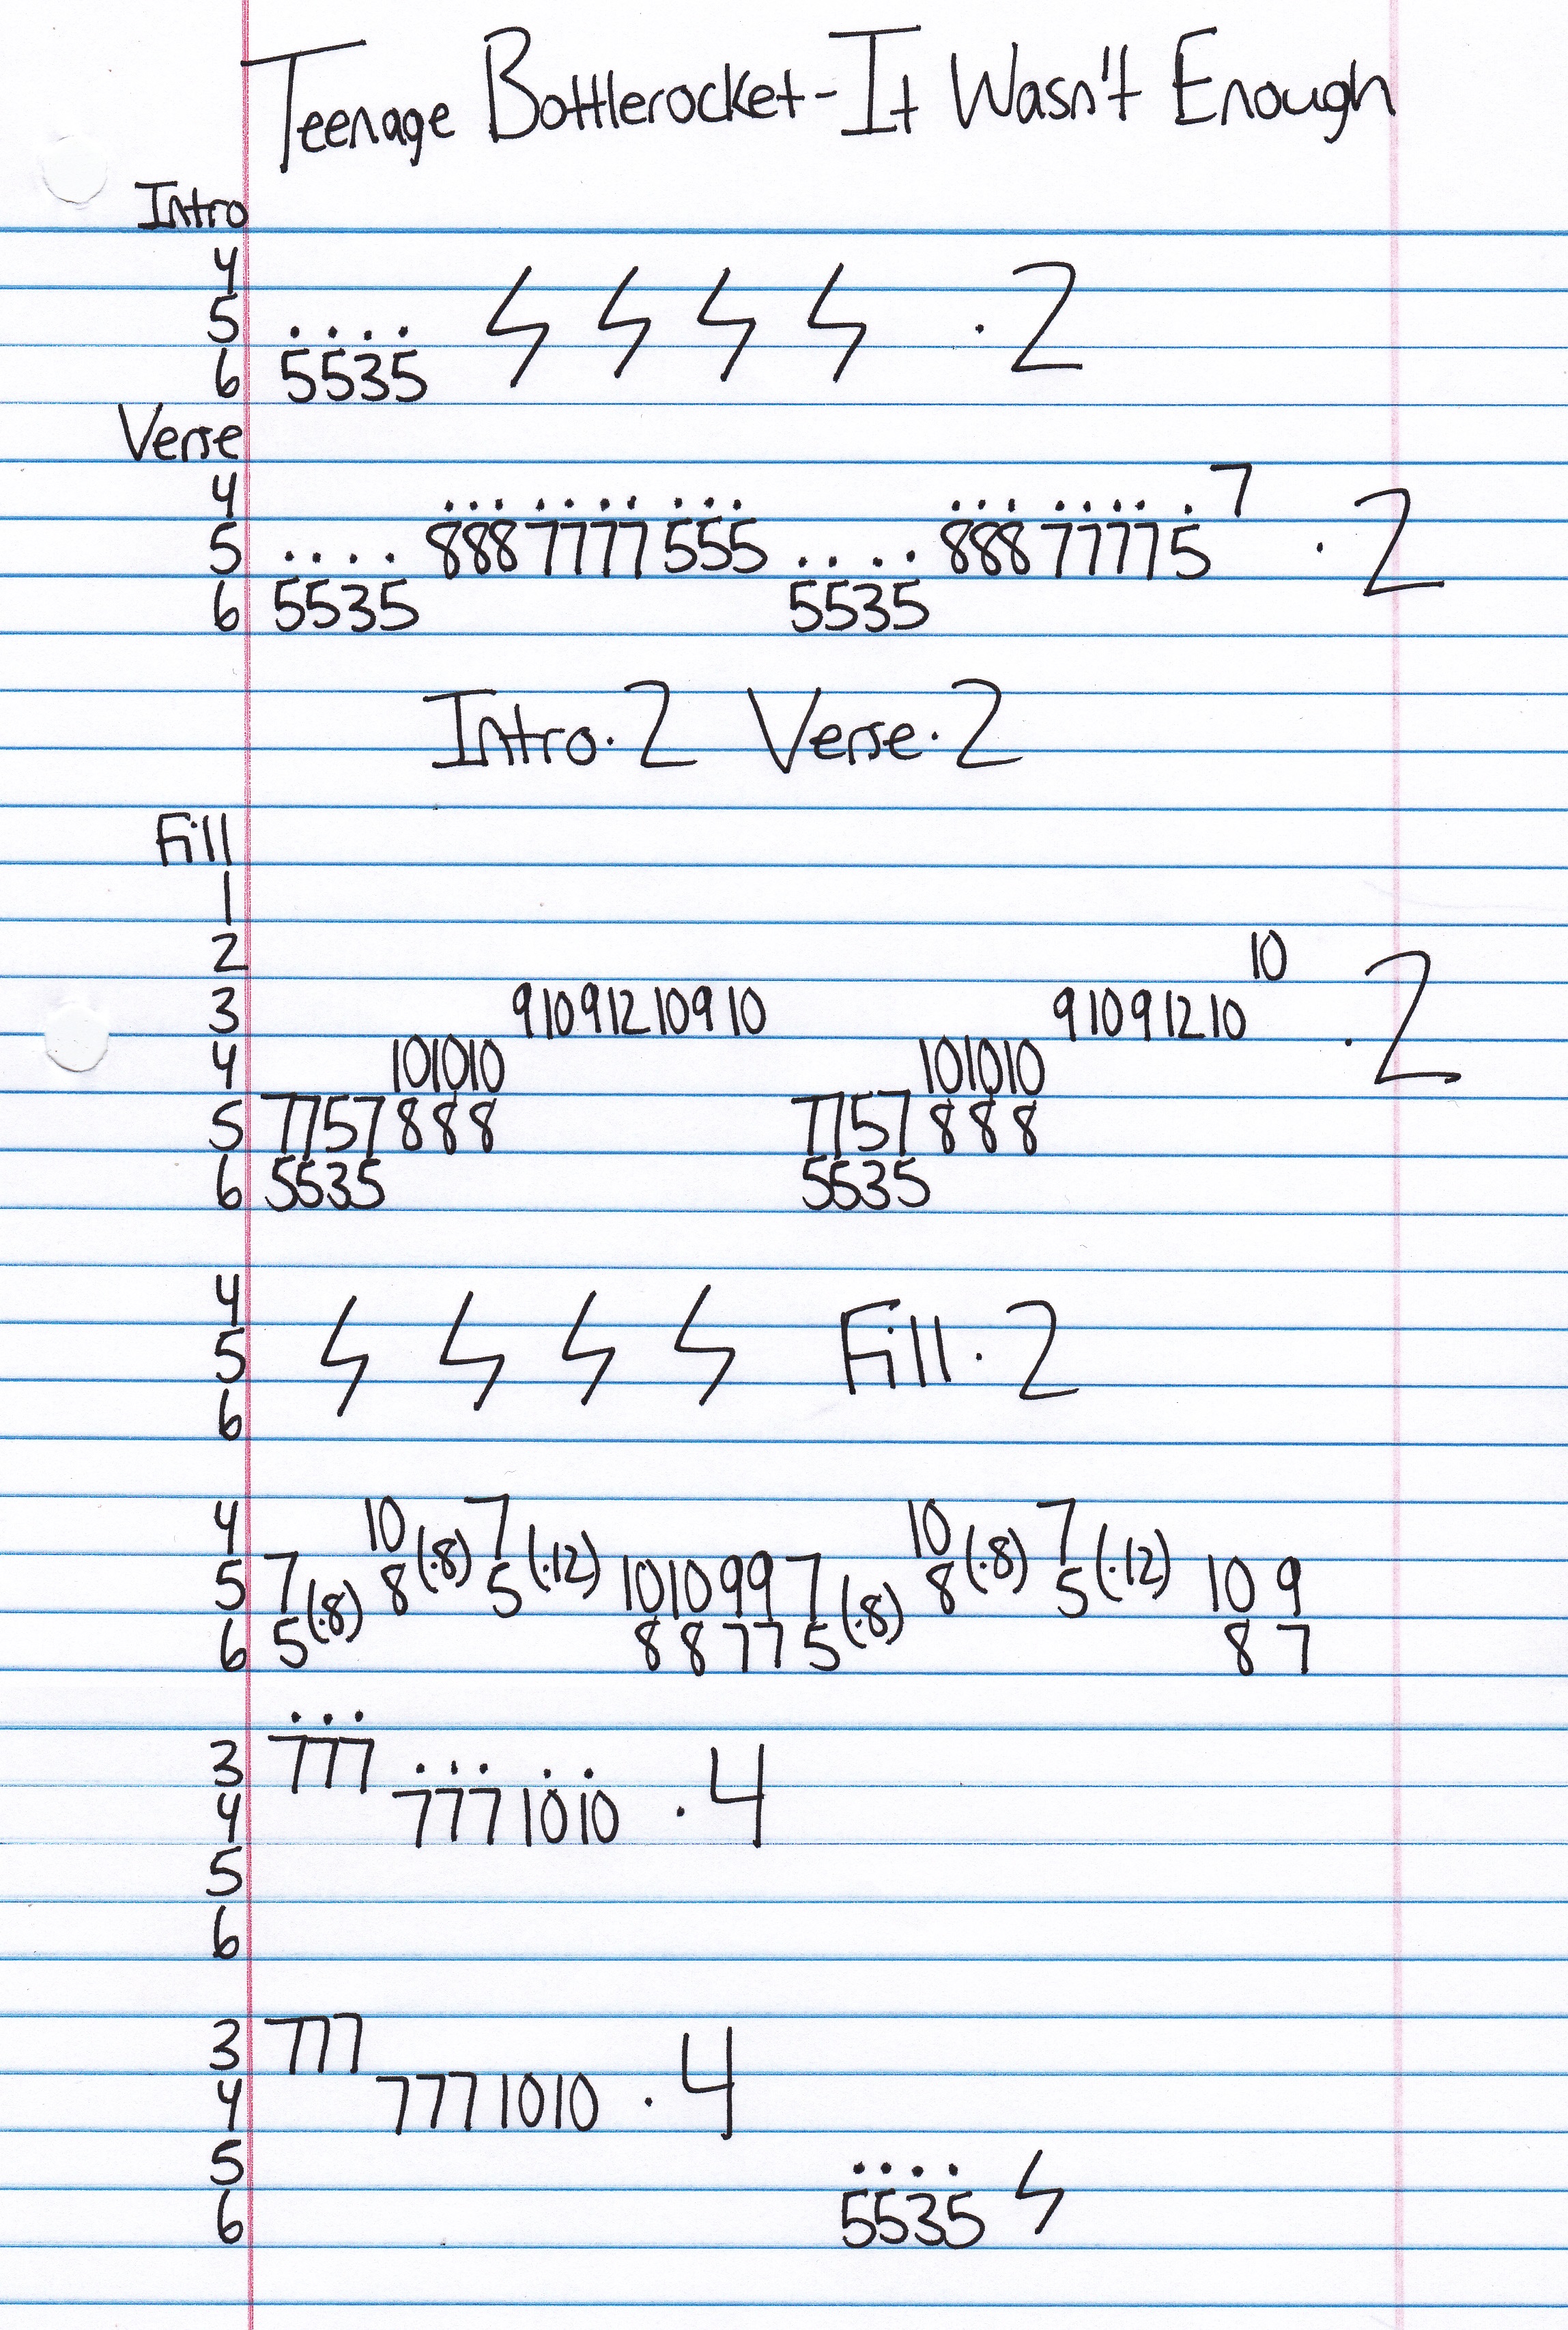 Teenage Bottlerocket - It Wasn't Enough
Intro
4
5 . . . .
6 5535 · 2
Verse
4 7
5 . . . . 8887777555 . . . . 88877775 · 2
6 5535 5535
Intro · 2 Verse · 2
Fill
1
2 10
3 91091210910 91091210 · 2
4 101010 101010
5 7757888 7757888
6 5535 5535
4
5 Fill · 2
6
4 10 7 10 7
5 7 (·8) 8 (·8) 5 (·12) 101099 7 (·8) 8 (·8) 5 (·12) 10 9
6 5 8877 5 8 7
3 777
4 7771010 · 4
5
6
3 777
4 7771010 · 4
5 . . . .
6 5535